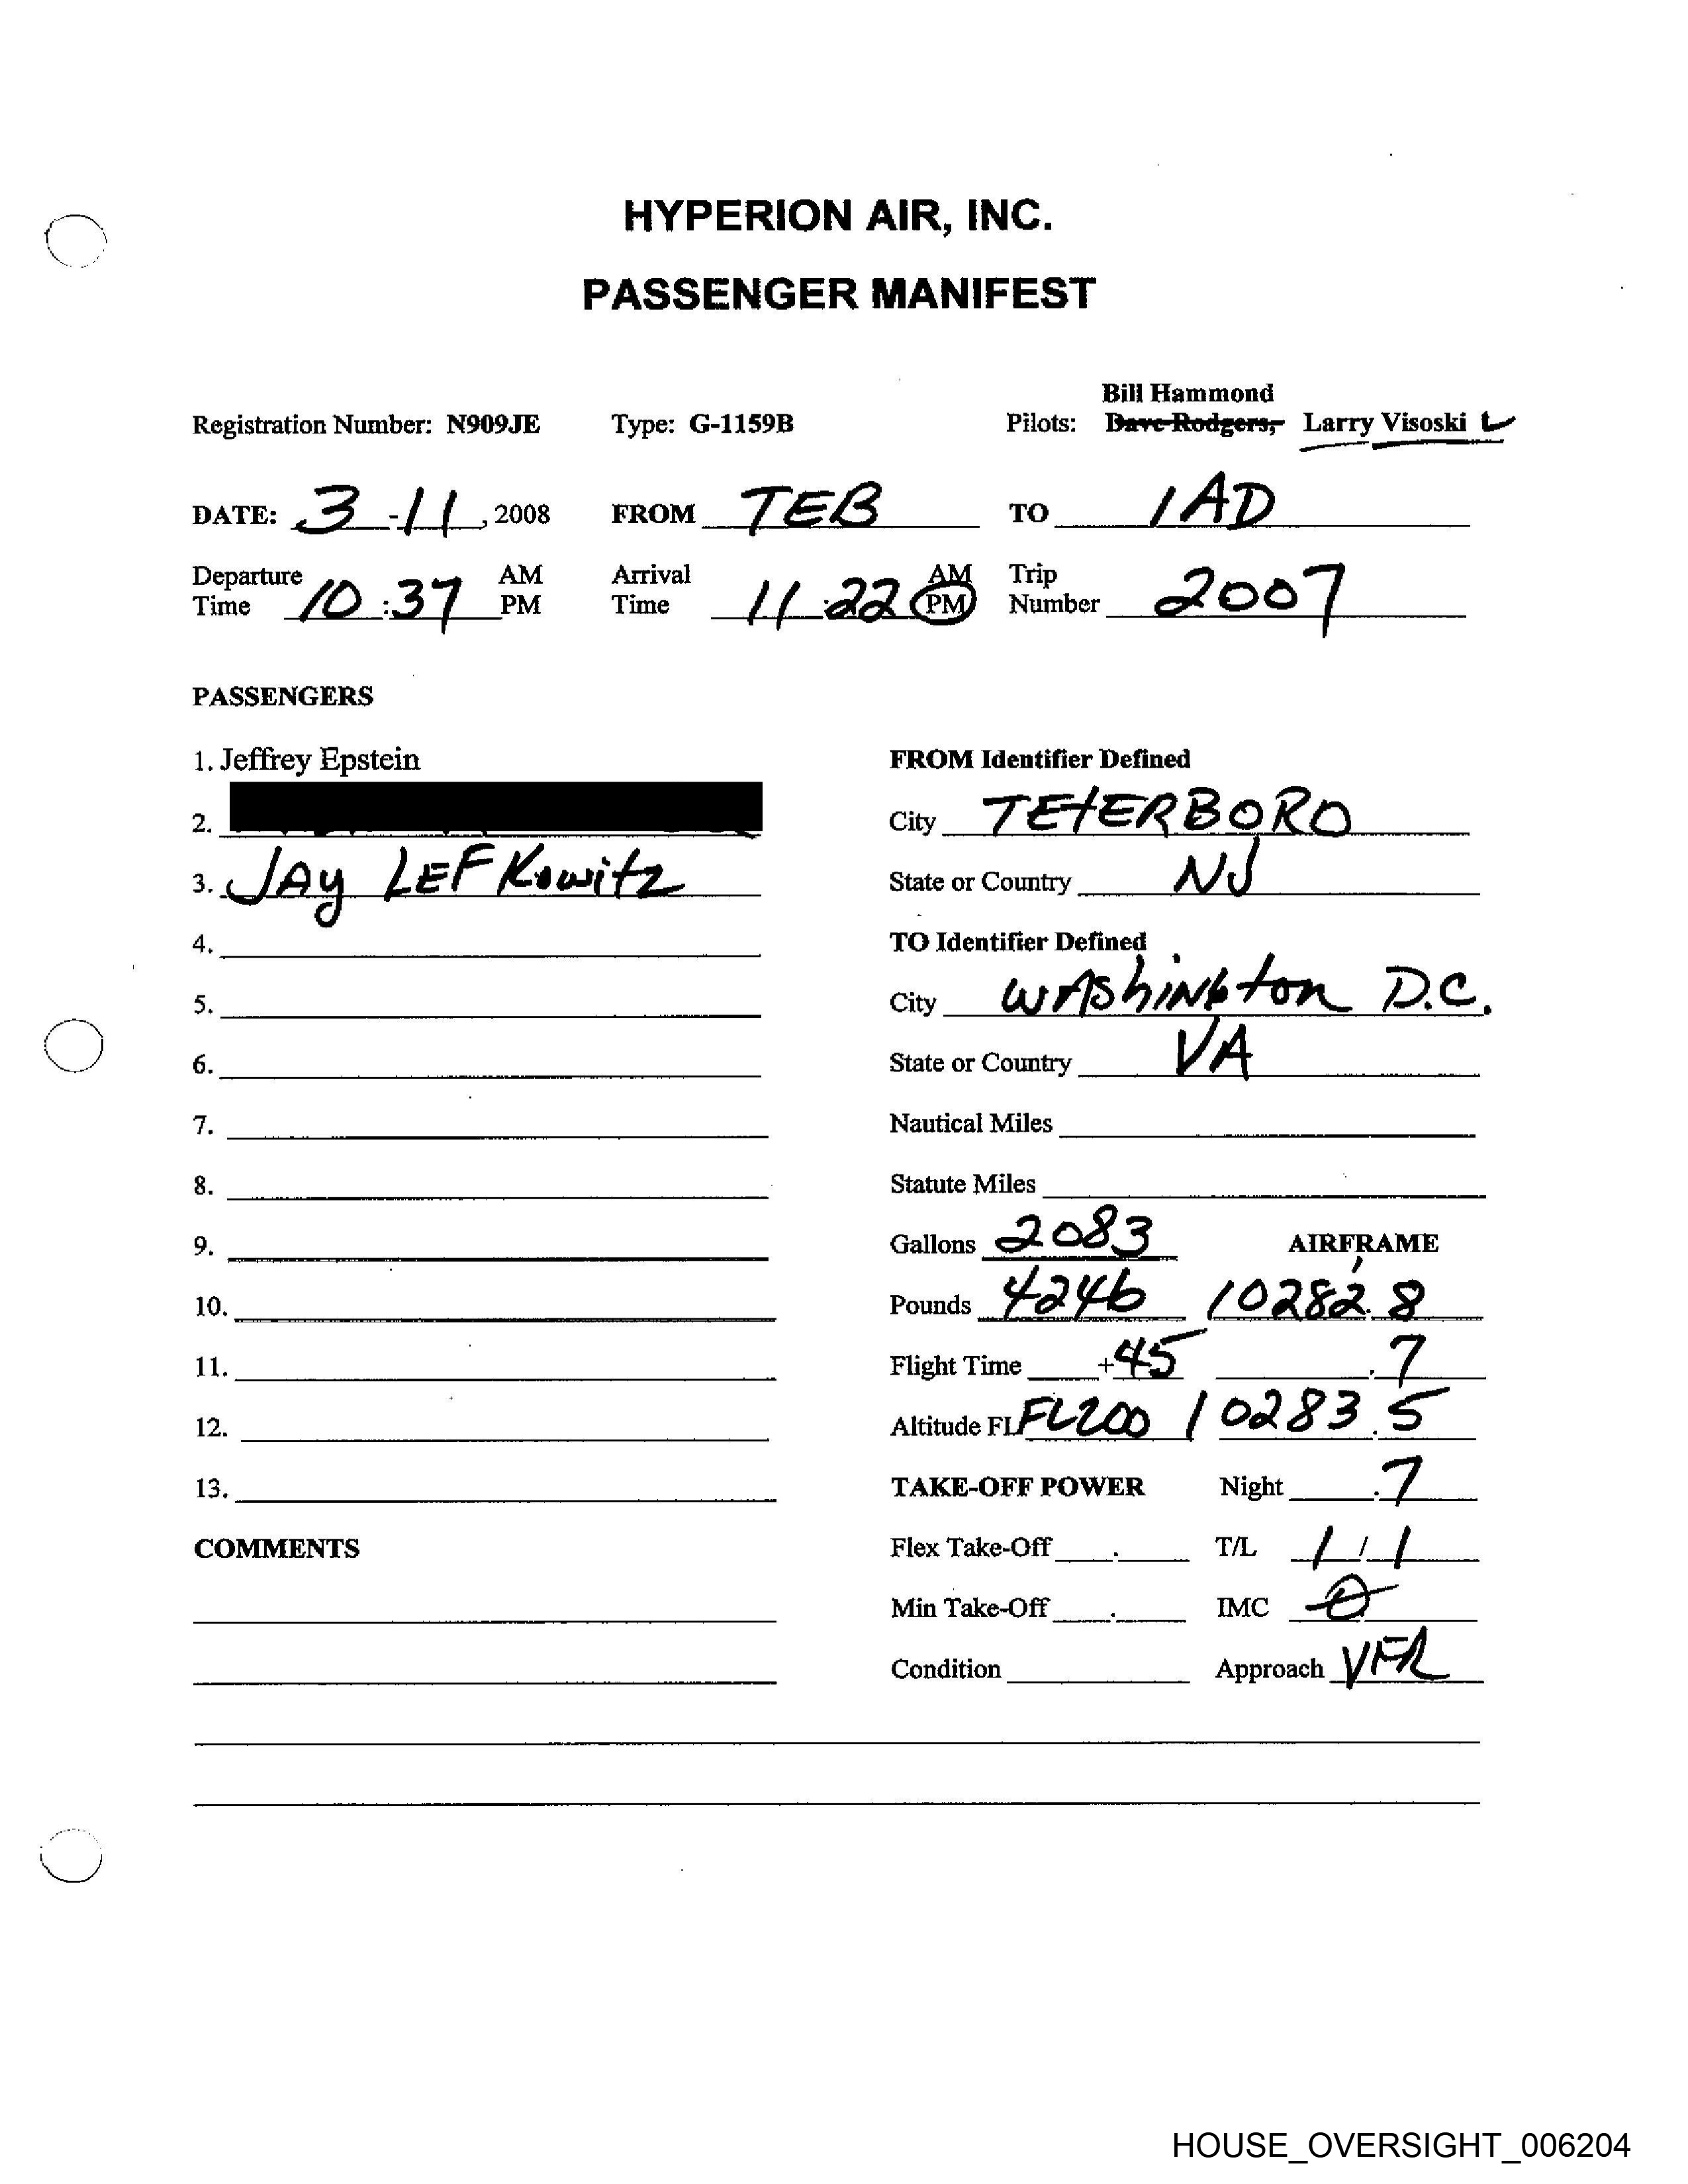 HYPERION AIR, INC.
PASSENGER MANIFEST
Bill Hammond
Registration Number: N909JE Type: G-1159B Pilots: Dave Rodgers, Larry Visoski
DATE: 3-11, 2008 FROM TEB TO IAD
Departure Time 10:37 AM PM Arrival Time 11:22 AM PM Trip Number 2007
PASSENGERS
1. Jeffrey Epstein FROM Identifier Defined
2. City TETERBORO
3. JAy LEFKowitz State or Country NJ
4. TO Identifier Defined
5. City WAShiNGton D.C.
6. State or Country VA
7. Nautical Miles
8. Statute Miles
9. Gallons 2083 AIRFRAME
10. Pounds 4246 10282.8
11. Flight Time +45 .7
12. Altitude FL FL200 10283.5
13. TAKE-OFF POWER Night .7
COMMENTS Flex Take-Off . T/L 1/1
Min Take-Off . IMC 0
Condition Approach VFR
HOUSE_OVERSIGHT_006204